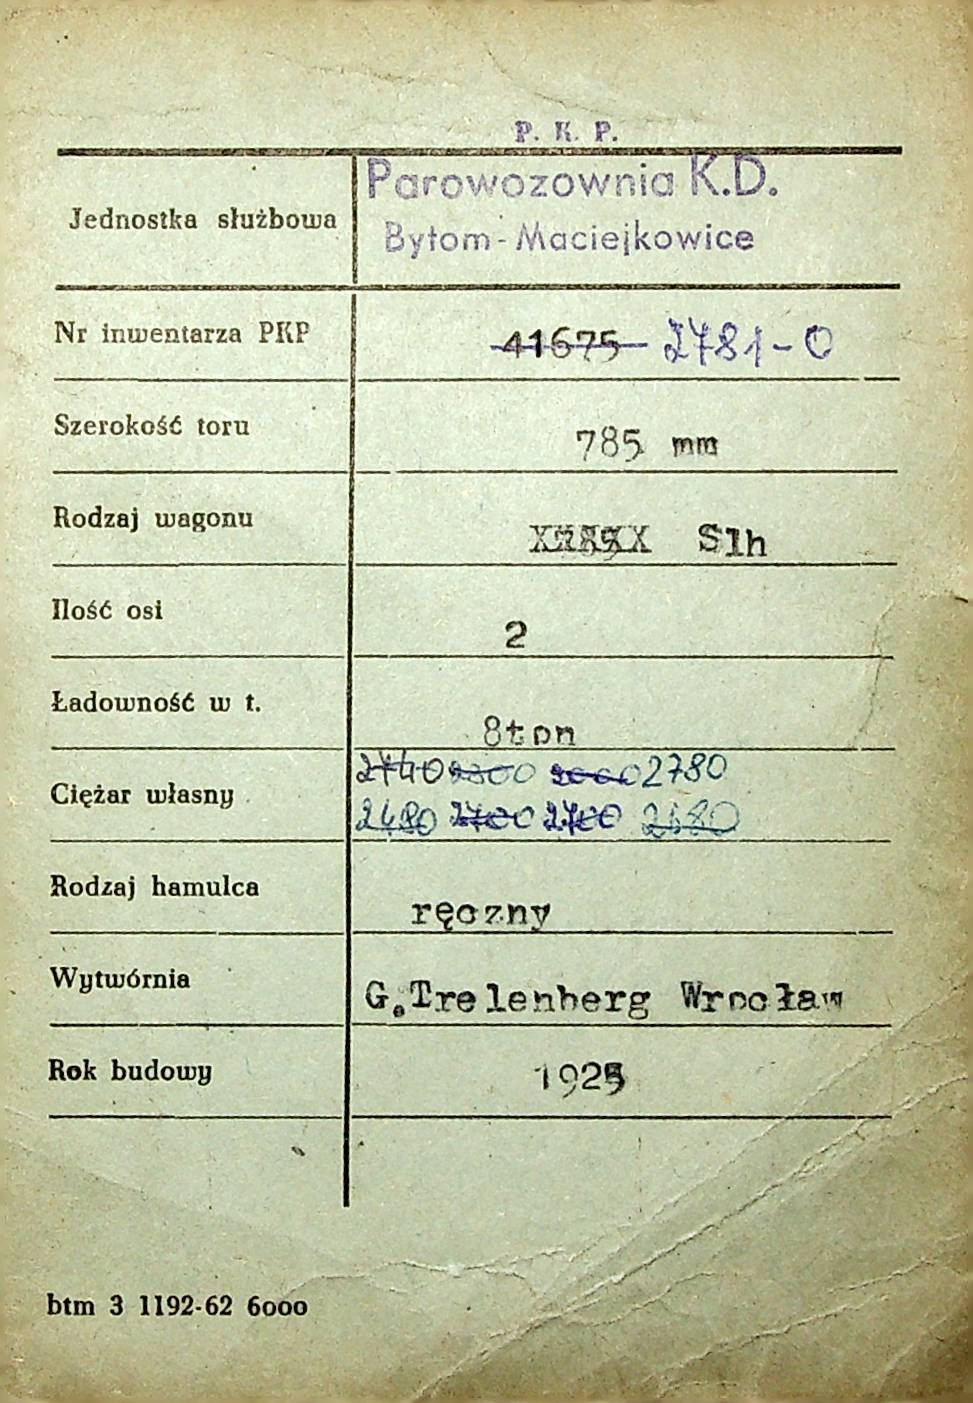 P. K. P.
Jednostka służbowa Parowozownia K.D.
Bytom-Maciejkowice
Nr inwentarza PKP 41675 2781-0
Szerokość toru 785 mm
Rodzaj wagonu Slh
Ilość osi 2
Ładowność w t. 8ton
Ciężar własny 2740 2780
2480 2700 2700 2680
Rodzaj hamulca ręczny
Wytwórnia G.Trelenberg Wrocław
Rok budowy 1925
btm 3 1192-62 6000